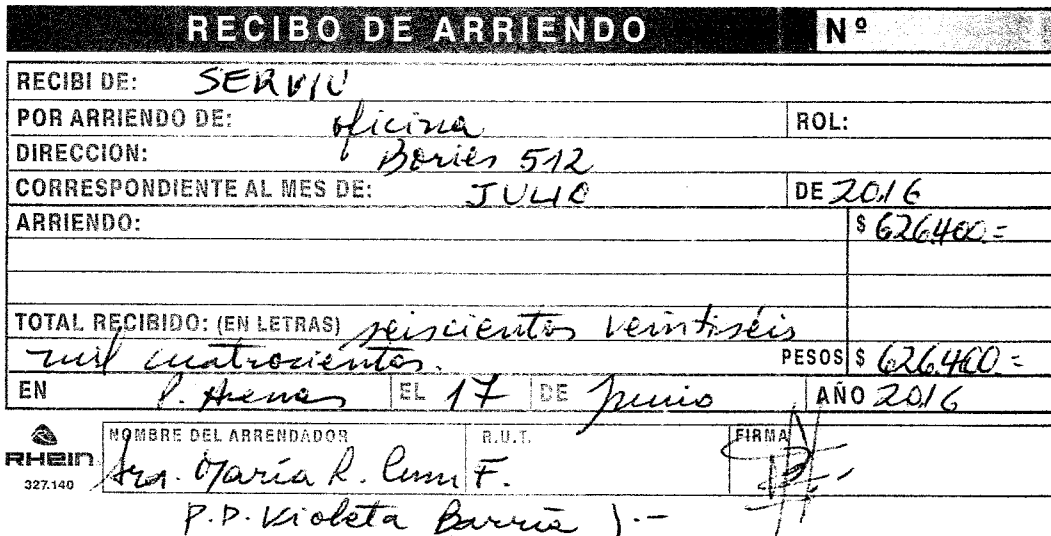 RECIBO DE ARRIENDO Nº
RECIBI DE: SERVIU
POR ARRIENDO DE: oficina ROL:
DIRECCION: Bories 512
CORRESPONDIENTE AL MES DE: JULIO DE 2016
ARRIENDO: $ 626.400.=
TOTAL RECIBIDO: (EN LETRAS) seiscientos veintiséis
mil cuatrocientos. PESOS $ 626.400.=
EN P. Arenas EL 17 DE junio AÑO 2016
NOMBRE DEL ARRENDADOR R.U.T. FIRMA
RHEIN Sra. María R. F.
327.140
P.P. Violeta Barría ).-